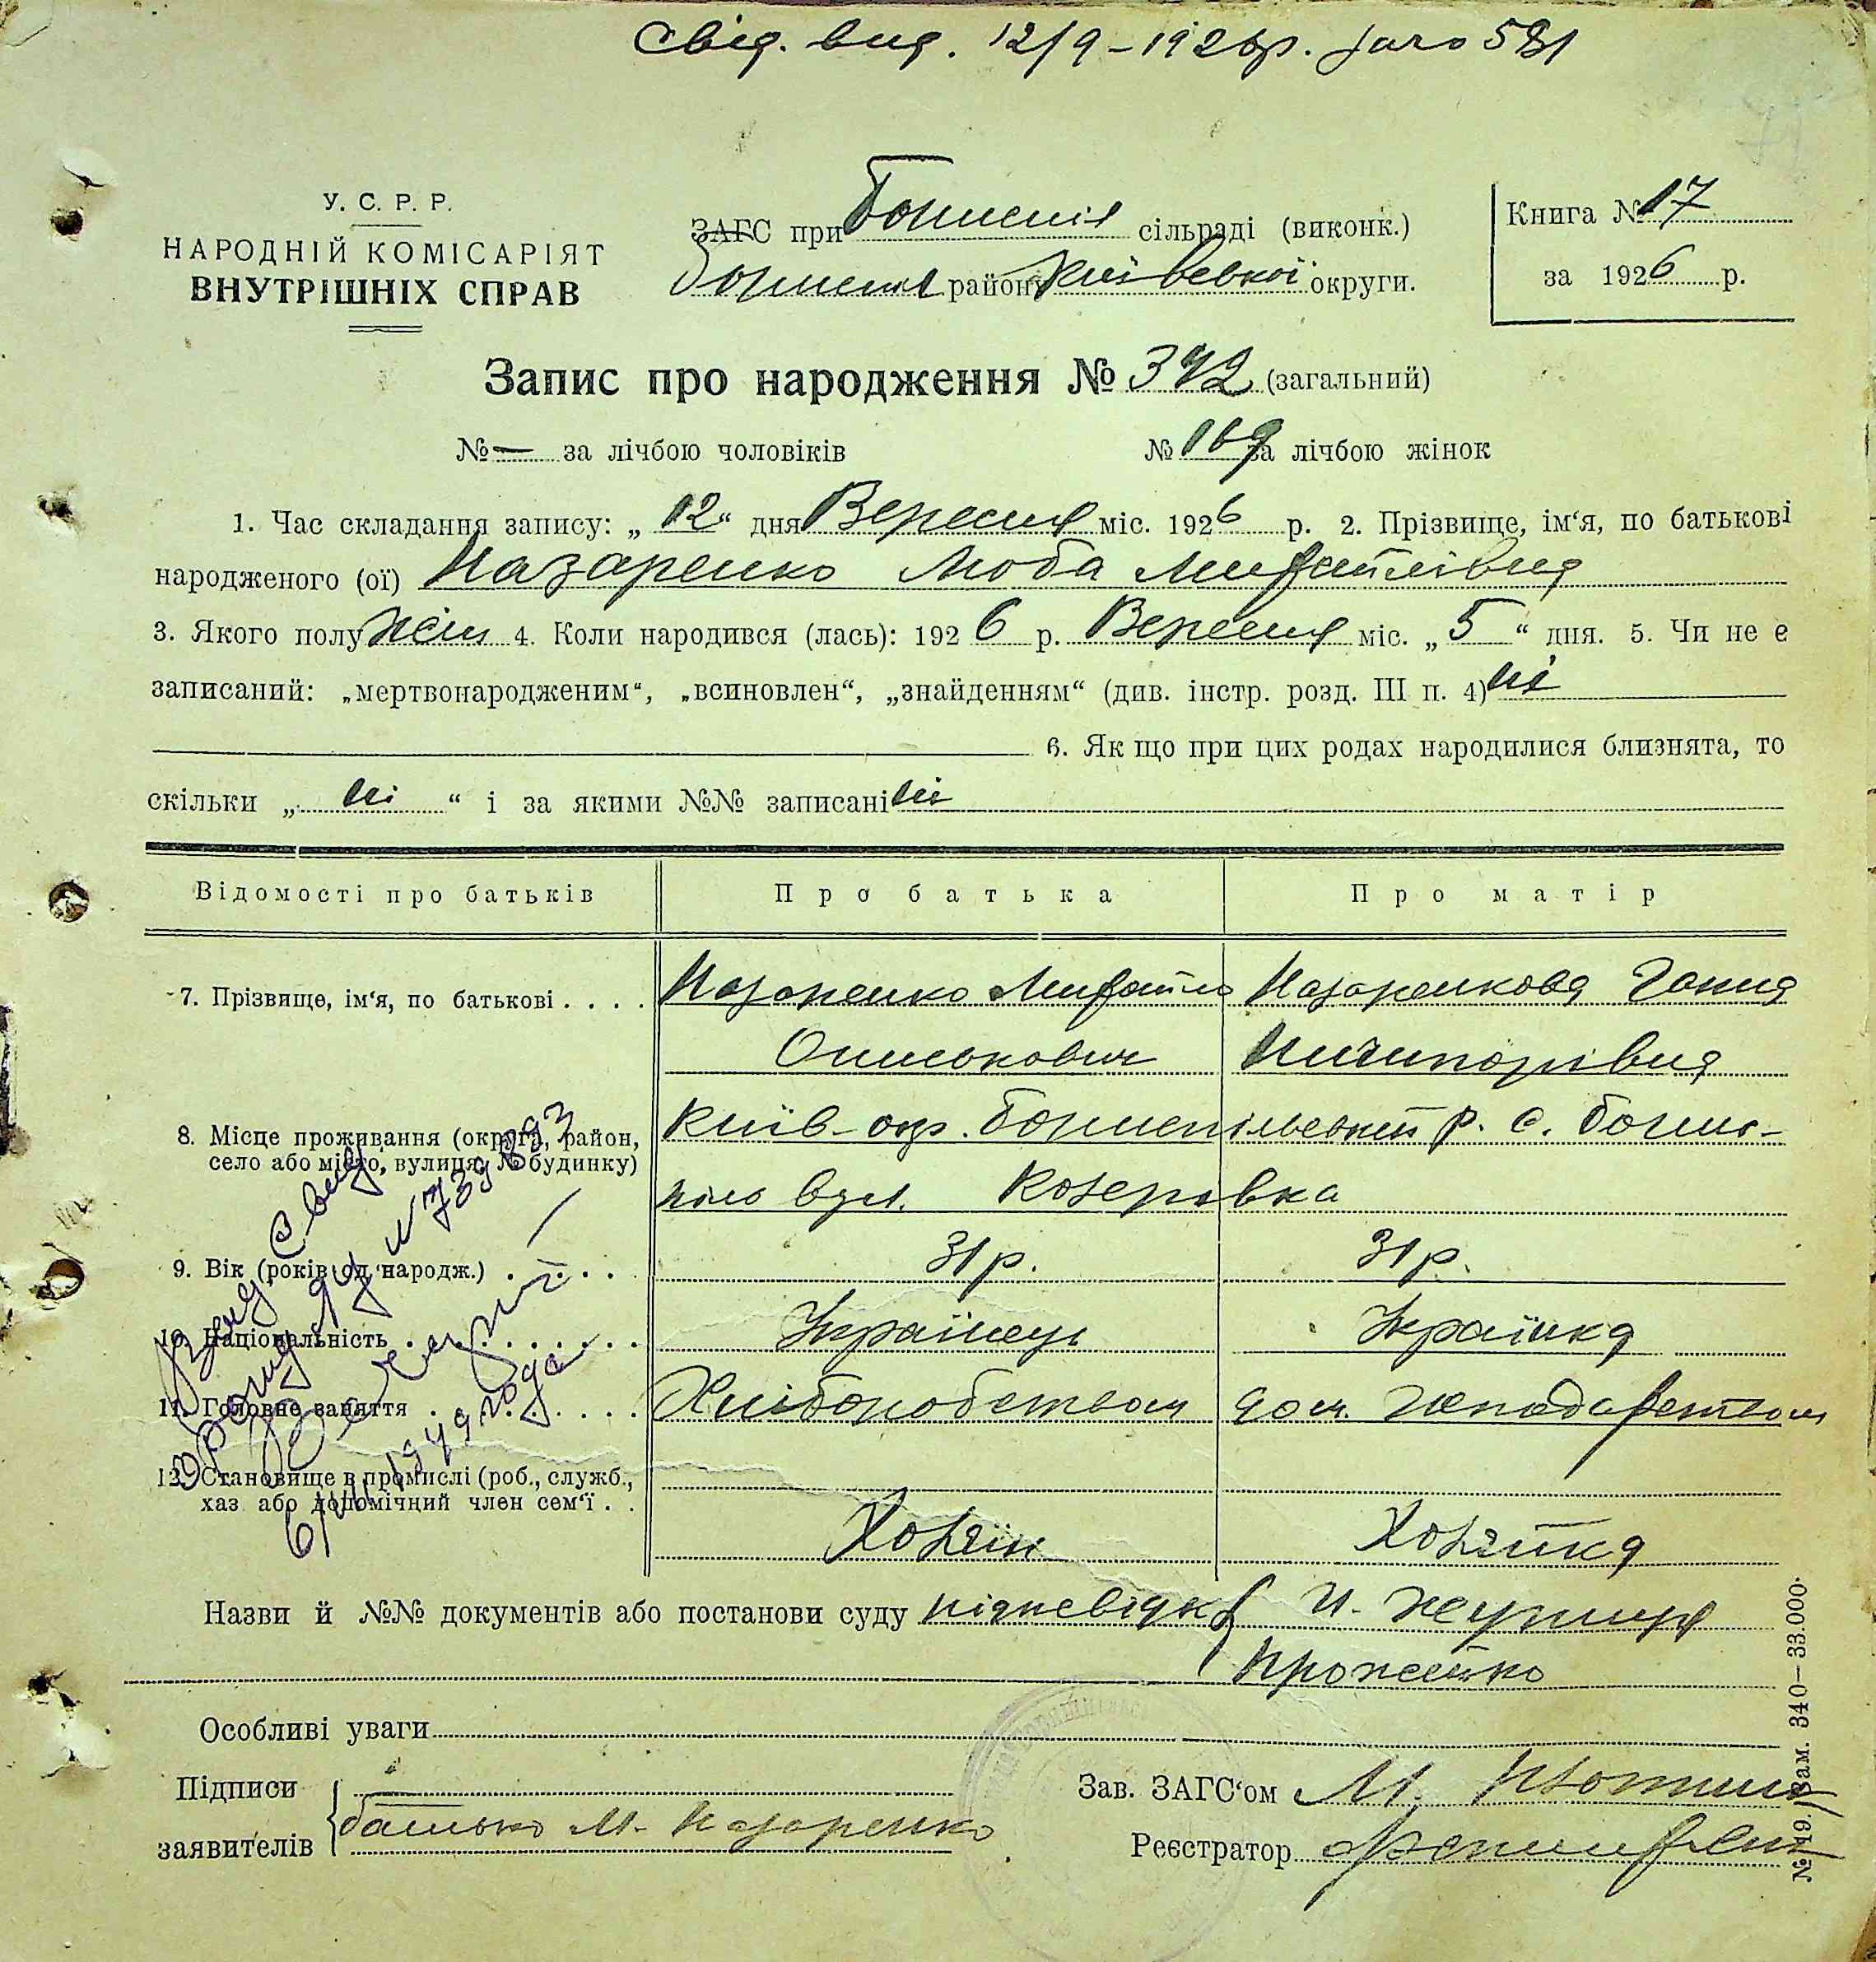 Свід. вид. 12/9-1926р. за № 581
У. С. Р. Р.
НАРОДНІЙ КОМІСАРІЯТ
ВНУТРІШНІХ СПРАВ
ЗАГС при сільраді (виконк.)
район Київської округи.
Книга № 17
за 1926 р.
Запис про народження № 372 (загальний)
№ — за лічбою чоловіків № 169 за лічбою жінок
1. Час складання запису: „12“ дня Вересня міс. 1926 р. 2. Прізвище, ім‘я, по батькові
народженого (ої) Назаренко Люба Михайлівна
3. Якого полу жін 4. Коли народився (лась): 1926 р. Вересня міс. „5“ дня. 5. Чи не є
записаний: „мертвонародженим“, „всиновлен“, „знайденням“ (див. інстр. розд. III п. 4) ні
6. Як що при цих родах народилися близнята, то
скільки „ні“ і за якими №№ записані ні
Відомості про батьків Про батька Про матір
7. Прізвище, ім‘я, по батькові . . . . Назаренко Михайло Назаренкова Ганна
Ничипорівна
8. Місце проживання (округа, район,
село або місто, вулиця, № будинку)
Київ-окр. Бориспільський р. с. Борис-
піль вул.
9. Вік (років од народж.) . . . . 31 р. 31 р.
10. Національність . . . . . . . Українець Українка
11. Головне заняття . . . . . . . Хліборобством дом. господарством
12. Становище в промислі (роб., служб.,
хаз або допомічний член сем‘ї . .
Хозяїн Хозяйка
Назви й №№ документів або постанови суду
Особливі уваги
Підписи
заявителів
батько М. Назаренко
Зав. ЗАГС‘ом М.
Реєстратор
№ 49 Зам. 340—33.000.